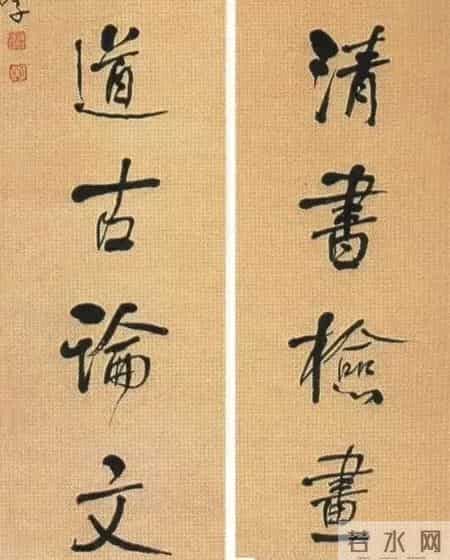 清書檢畫
道古論文
若水网